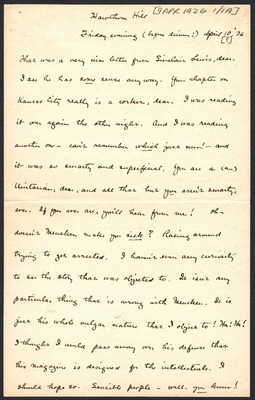 [9 APR 1926 1/1A]
Hawthorn Hill
Friday evening (before dinner!) April 10, '26
[9]
That was a very nice letter from Sinclair Lewis, dear.
I see he has some sense anyway. Your chapter on
Kansas City really is a corker, dear. I was reading
it over again the other night. And I was reading
another one - can't remember which just now! - and
it was so smarty and superficial. You are a (an)
Unitarian, dear, and all that but you aren't smarty,
ever. If you ever are, you'll hear from me! Oh -
doesn't Mencken make you sick? Racing around
trying to get arrested. I haven't even any curiosity
to see the story that was objected to. It isn't any
particular thing that is wrong with Mencken. It is
just his whole vulgar nature that I object to! Ha! Ha!
I thought I would pass away over his defense that
his magazine is designed for the intellectuals. I
should hope so. Sensible people - well - you know!